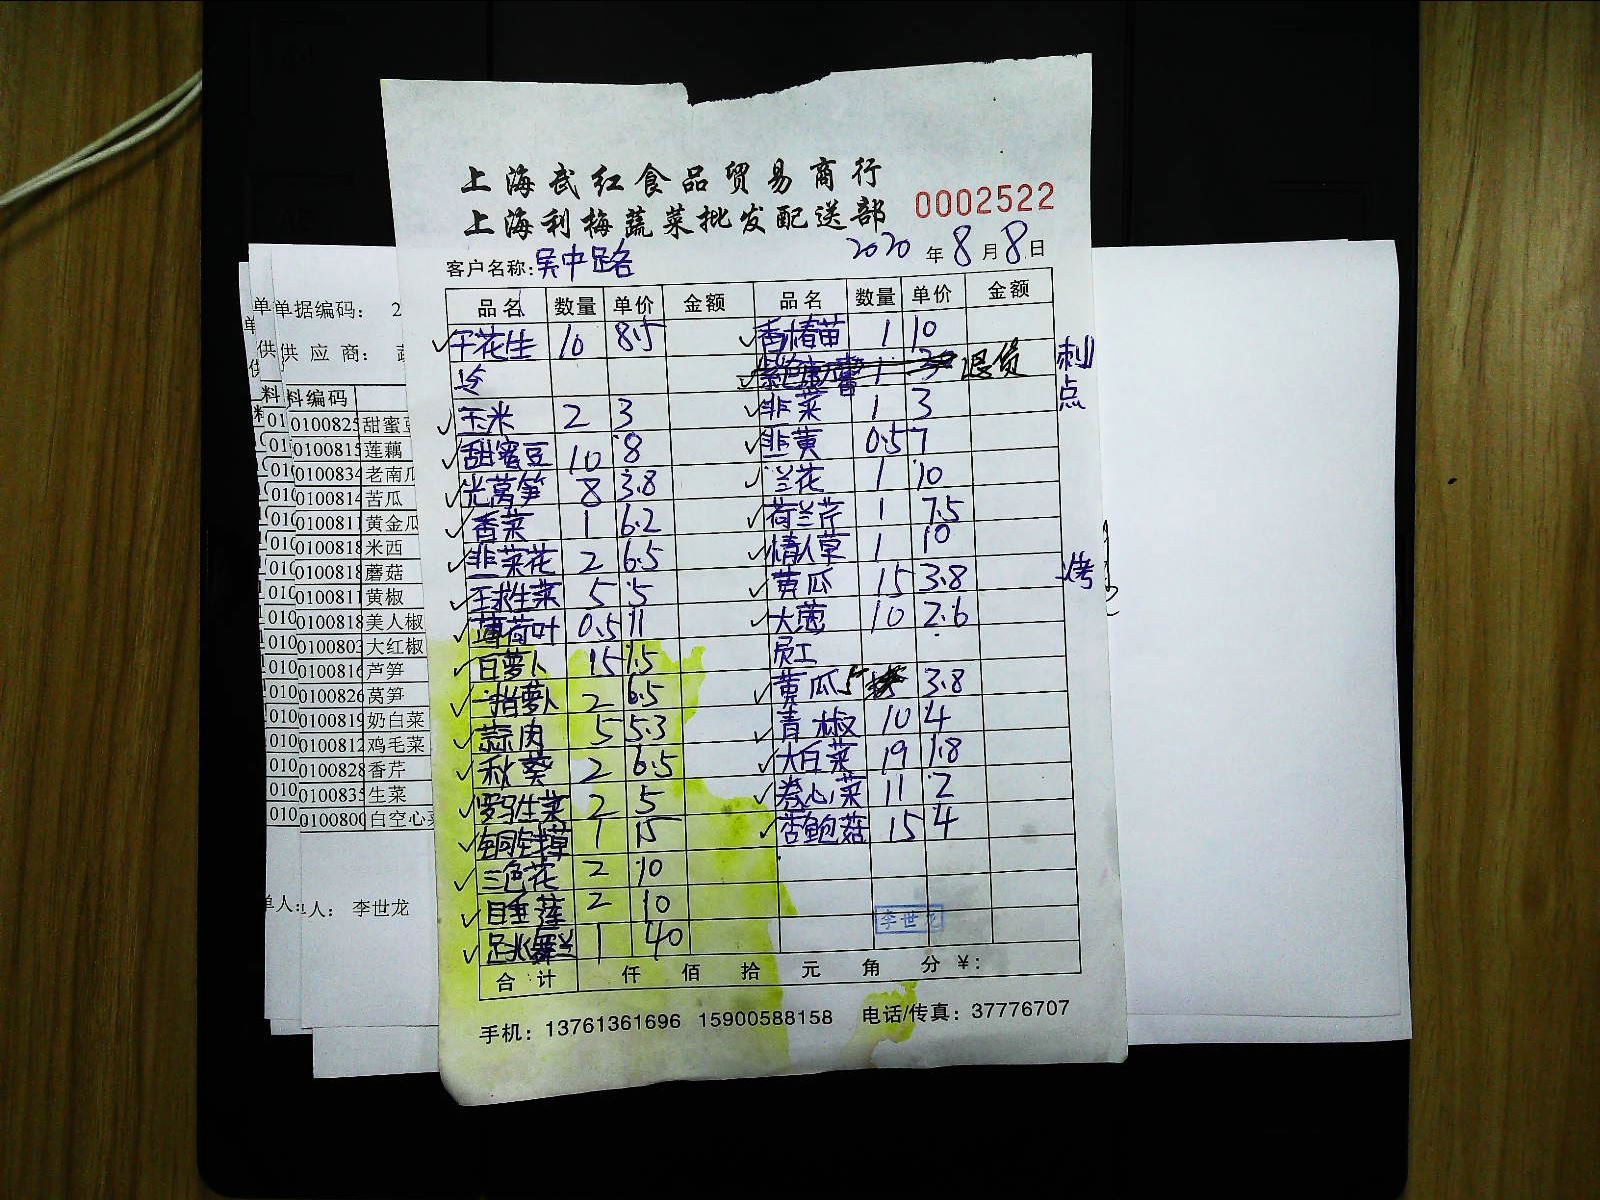 上海武红食品贸易商行
上海利梅蔬菜批发配送部
0002522
客户名称:吴中路 2020年8月8日
品名 数量 单价 金额 品名 数量 单价 金额
干花生 10 8.5 香椿苗 1 10
冷 1 3 退货
玉米 2 3 韭菜 1 3
甜蜜豆 10 8 韭黄 0.5 7
光莴笋 8 3.8 兰花 1 10
香菜 1 6.2 荷兰芹 1 7.5
韭菜花 2 6.5 情人草 1 10
王球生菜 5 5 黄瓜 15 3.8
薄荷叶 0.5 11 大葱 10 2.6
白萝卜 15 1.5 员工
一指萝卜 2 6.5 黄瓜 5 3.8
蒜肉 5 5.3 青椒 10 4
秋葵 2 6.5 大白菜 19 1.8
罗马生菜 2 5 卷心菜 11 2
铜钱草 1 15 杏鲍菇 15 4
三色花 2 10
目垂莲 2 10
1 40
合计 仟 佰 拾 元 角 分 ¥:
手机: 13761361696 15900588158 电话/传真: 37776707
刺点
烤
李世龙
单据编码: 2
供应商:
料编码
0100825 甜蜜豆
0100815 莲藕
0100834 老南瓜
0100814 苦瓜
0100811 黄金瓜
0100818 米西
0100818 蘑菇
0100811 黄椒
0100818 美人椒
0100803 大红椒
0100816 芦笋
0100826 莴笋
0100819 奶白菜
0100812 鸡毛菜
0100828 香芹
0100835 生菜
0100800 白空心菜
单人: 李世龙